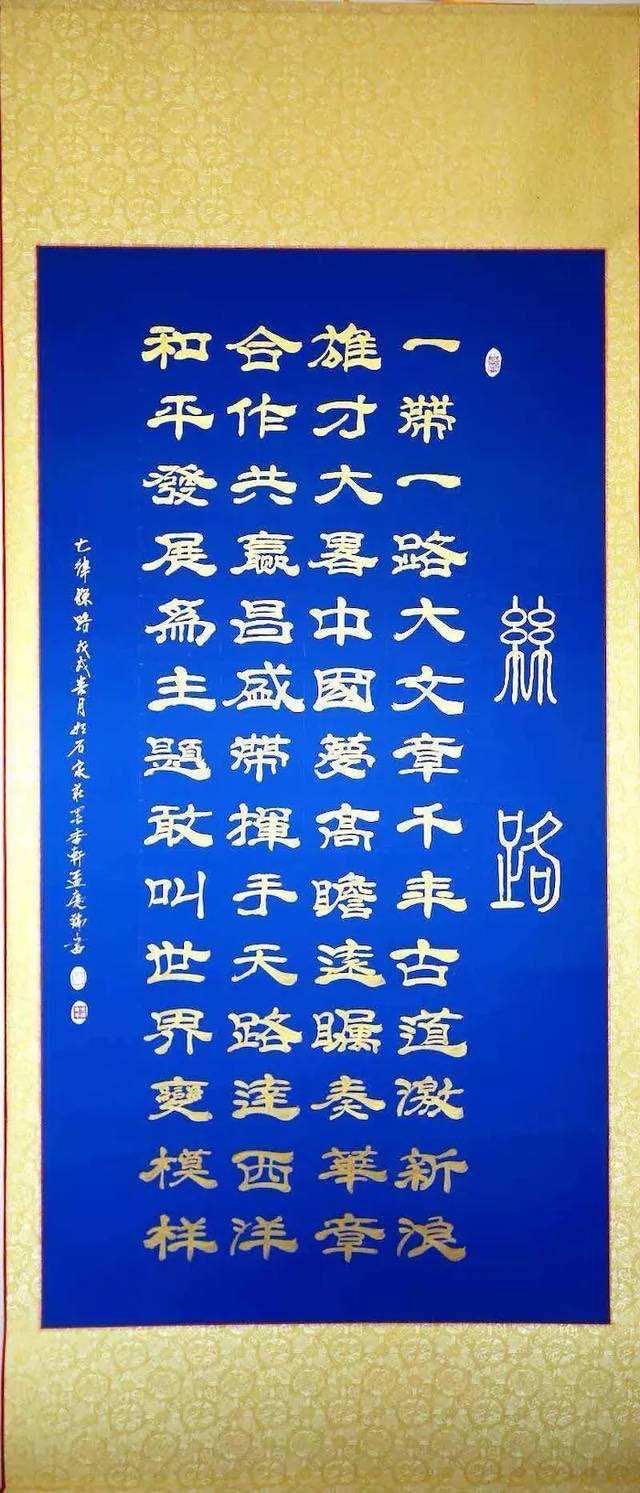 絲路
一帶一路大文章千年古道激新浪
雄才大畧中國夢高瞻遠瞩奏華章
合作共贏昌盛帶揮手天路達西洋
和平發展爲主題敢叫世界變模样
七律絲路戊戌月於石家莊香軒孟慶瑞書